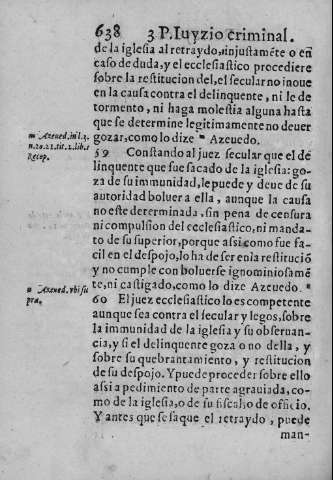 638 3 P. Iuyzio criminal.
de la iglesia al retraydo, iinjustamẽte o en
caso de duda, y el ecclesiastico procediere
sobre la restitucion del, el secular no inoue
en la causa contra el delinquente, ni le de
tormento, ni haga molestia alguna hasta
que se determine legitimamente no deuer
gozar, como lo dize m Azeuedo.
m Azeued. in l. 3.
n. 20. 21. tit. 2. lib. 1
Recop.
59 Constando al juez secular que el de
linquente que fue sacado de la iglesia: go-
za de su immunidad, le puede y deue de su
autoridad boluer a ella, aunque la causa
no este determinada, sin pena de censura
ni compulsion del ecclesiastico, ni manda-
to de su superior, porque assi como fue fa-
cil en el despojo, lo ha de ser en la restituciõ
y no cumple con boluerse ignominiosamẽ
te, ni castigado, como lo dize Azeuedo. n
n Azeued. vbi su
pra.
60 El juez ecclesiastico lo es competente
aunque sea contra el secular y legos, sobre
la immunidad de la iglesia y su obseruan-
cia, y si el delinquente goza o no della, y
sobre su quebrantamiento, y restitucion
de su despojo. Y puede proceder sobre ello
assi a pedimiento de parte agrauiada, co-
mo de la iglesia, o de su fiscal o de officio.
Y antes que se saque el retraydo, puede
man-